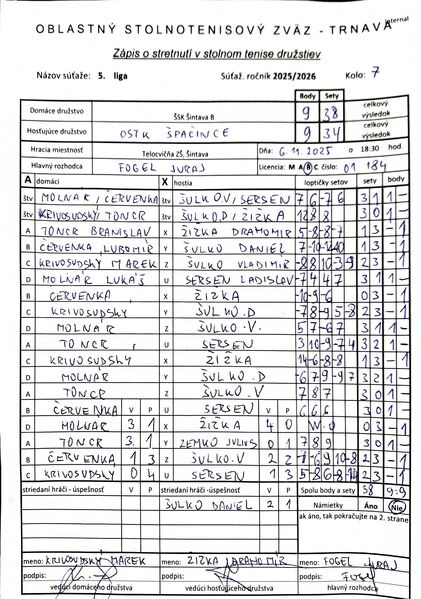 internal
OBLASTNÝ STOLNOTENISOVÝ ZVÄZ - TRNAVA
Zápis o stretnutí v stolnom tenise družstiev
Názov súťaže: 5. liga Súťaž. ročník 2025/2026 Kolo: 7
Body Sety
Domáce družstvo ŠSK Šintava B 9 38 celkový výsledok
Hosťujúce družstvo OSTK ŠPAČINCE 9 34 celkový výsledok
Hracia miestnosť Telocvičňa ZŠ, Šintava Dňa: 6.11.2025 o 18:30 hod.
Hlavný rozhodca FOGEL JURAJ Licencia: M A B C číslo 01 184
A domáci X hostia loptičky setov sety body
štv MOLNÁR, ČERVENKA štv ŠULKO.V, SERSEN 7 6 -7 6 3 1 1 -
štv KRIVOSUDSKÝ TONCR štv ŠULKO.D, ŽIŽKA 12 8 8 3 0 1 -
A TONCR BRANISLAV X ŽIŽKA DRAHOMÍR 5 -8 -8 -7 1 3 - 1
B ČERVENKA ĽUBOMÍR Y ŠULKO DANIEL 1 3 - 1
C KRIVOSUDSKÝ MAREK Z ŠULKO VLADIMÍR 2 3 - 1
D MOLNÁR LUKÁŠ U SERSEN LADISLAV -7 4 4 7 3 1 1 -
B ČERVENKA X ŽIŽKA -10 -9 -6 0 3 - 1
C KRIVOSUDSKÝ Y ŠULKO.D -7 8 -9 5 -8 2 3 - 1
D MOLNÁR Z ŠULKO.V. 5 7 -6 7 3 1 1 -
A TONCR U SERSEN 3 10 -9 -7 4 3 2 1 -
C KRIVOSUDSKÝ X ŽIŽKA 14 -6 -8 -8 1 3 - 1
D MOLNÁR Y ŠULKO.D -6 7 9 -9 7 3 2 1 -
A TONCR Z ŠULKO.V 7 8 7 3 0 1 -
B ČERVENKA V P U SERSEN V P 6 6 6 3 0 1 -
D MOLNAR 3 1 X ŽIŽKA 4 0 W.O 0 3 - 1
A TONCR 3.1 Y ZEMKO JULIUS 0 1 7 8 9 3 0 1 -
B ČERVENKA 1 3 Z ŠULKO.V 2 2 2 3 - 1
C KRIVOSUDSKÝ 0 4 U SERSEN 1 3 2 3 - 1
striedaní hráči - úspešnosť V P striedaní hráči - úspešnosť V P Spolu body a sety 38 9:9
ŠULKO DANIEL 2 1 Námietky Áno Nie
ak áno, tak pokračujte na 2. strane
meno: KRIVOSUDSKÝ MAREK meno: ŽIŽKA DRAHOMÍR meno: FOGEL JURAJ
podpis: podpis: podpis: FOGEL
vedúci domáceho družstva vedúci hosťujúceho družstva hlavný rozhodca